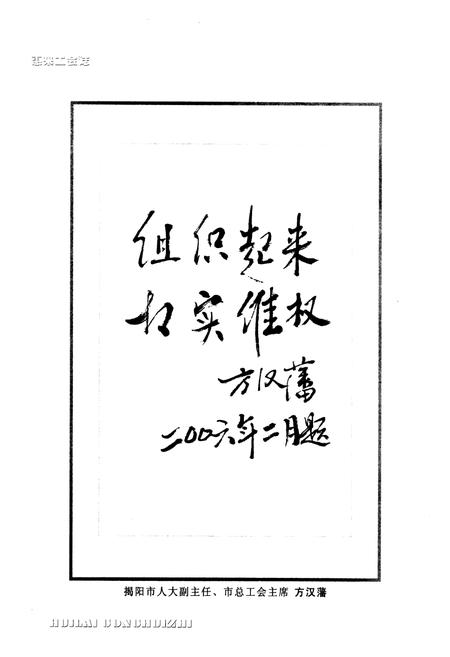 惠来工会志
组织起来
扎实维权
方汉藩
二00六年二月题
揭阳市人大副主任、市总工会主席 方汉藩
HUILAI GONGHUIZHI